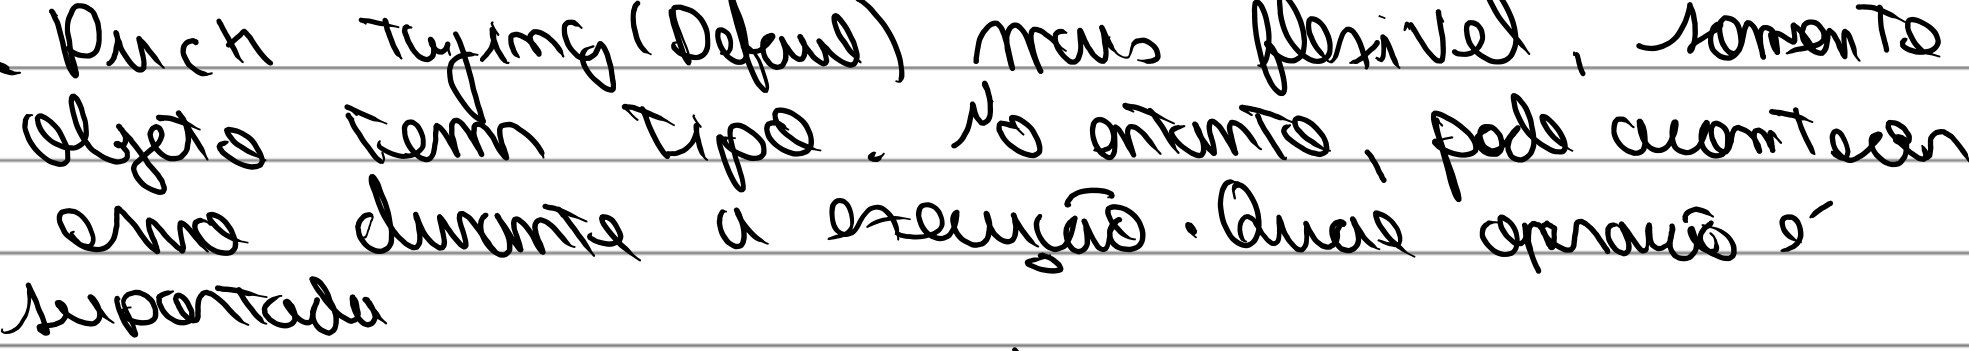 Duck typing (Default) mais flexível, somente
objeto tem tipo. No entanto, pode acontecer
erro durante a execução. Qual operação é
suportada